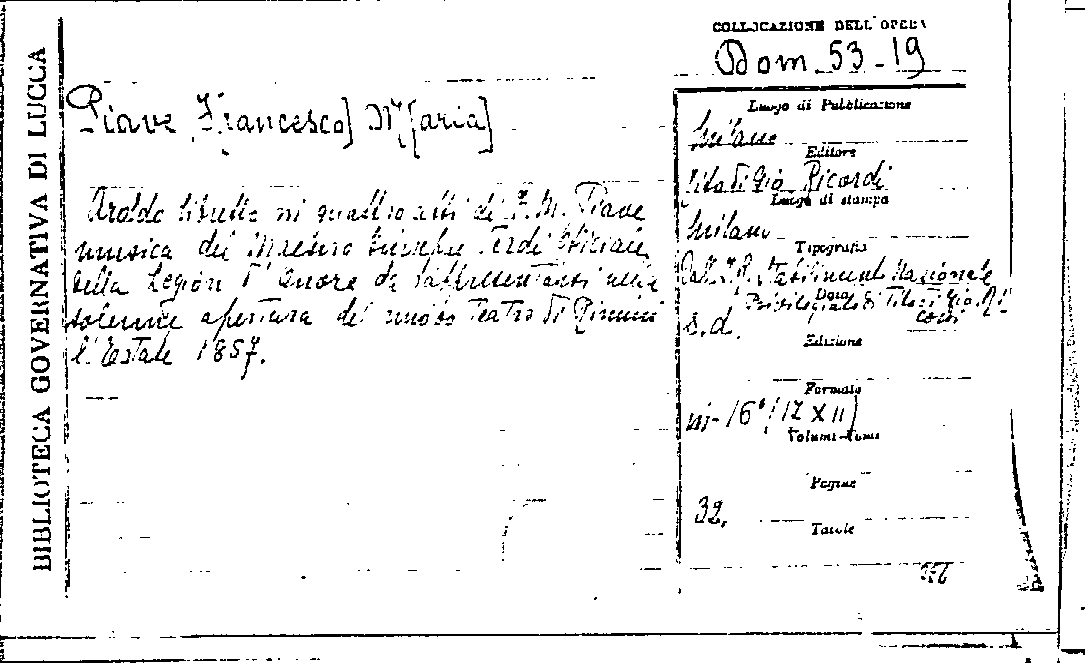 BIBLIOTECA GOVERNATIVA DI LUCCA
COLLOCAZIONE DELL'OPERA
Dom. 53-19
Piave F[rancesco] M[aria]
Aroldo libretto in quattro atti di F. M. Piave
musica del Maestro Giuseppe Verdi Ufficiale
della Legion d'Onore da rappresentarsi nella
solenne apertura del nuovo Teatro di Rimini
l'Estate 1857.
Luogo di Pubblicazione
Milano
Editore
Tito di Gio Ricordi
Luogo di stampa
Milano
Tipografia
Dall'I. R. Stabilimento Nazionale
Privilegiato di Tito di Gio. Ri-
cordi
Data
s.d.
Edizione
Formato
in-16° (17 X 11)
Volumi-Tomi
Pagine
32.
Tavole